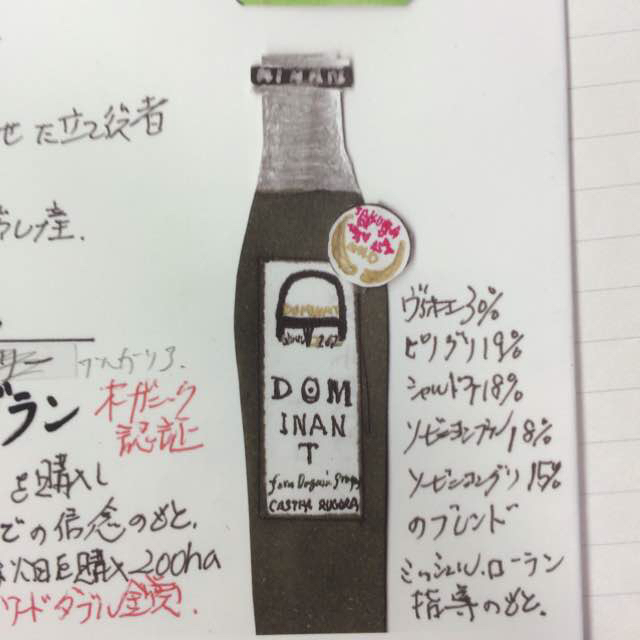 せた立役者
した産.
ブラン
オーガニック
認証
を購入し
での信念のもと.
次畑を購入200ha
ワードダブル金賞.
sakura
DOM
INAN
T
from Organic Grapes
ヴィオニエ30%
ピノグリ19%
シャルドネ18%
ソービニヨンブラン18%
ソービニヨングリ15%
のブレンド
ミッシェル.ローラン
指導のもと.